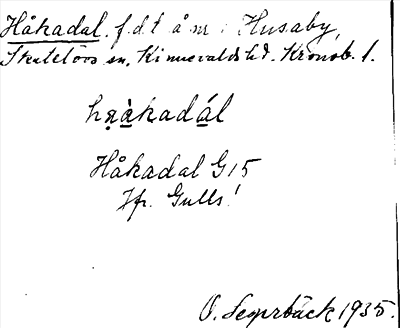 Håkadal. f.d.t å nr i Husaby,
Skatelövs sn, Kinnevalds hd. Kronob. l.
hạàkadál
Håkadal G 15
Jfr. Gulls!
O. Segerbäck 1935.